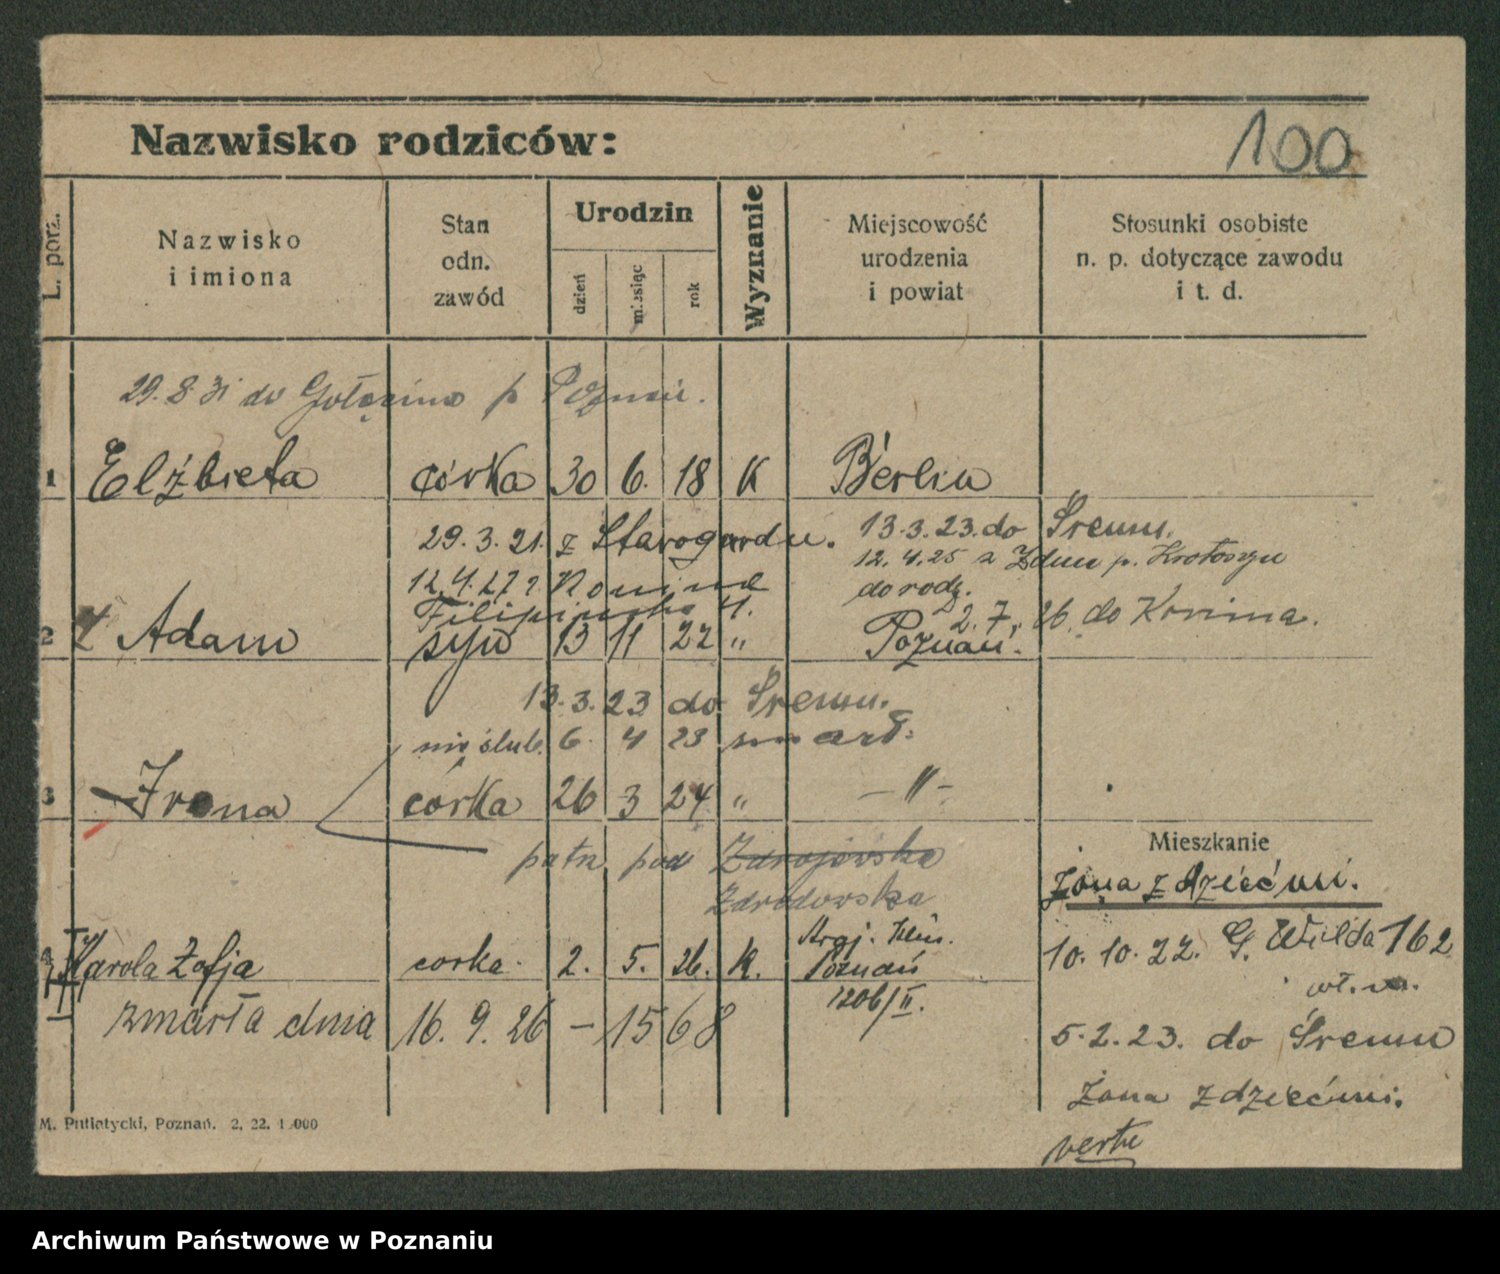 100
Nazwisko rodziców:
L. porz.
Nazwisko
i imiona
Stan
odn.
zawód
Urodzin
dzień
miesiąc
rok
Wyznanie
Miejscowość
urodzenia
i powiat
Stosunki osobiste
n. p. dotyczące zawodu
i t. d.
29.8.31 do Gołęcina p Poznań.
1 Elżbieta córka 30 6. 18 K Berlin
29.3.21. z Starogardu. 13.3.23. do Śremu.
12.4.25 z Zdun p. Krotoszyn
12.4.27 Konina do rodz.
Filipinska 4. 2.7.26. do Konina.
2 Adam syn 13 11 22 " Poznań.
13.3.23 do Śremu.
nieślub. 6. 4 23 zmarł.
3 Irena córka 26 3 24 " -"-
patrz pod Zdrojewska
Zdrodowska
Mieszkanie
żona z dziećmi.
4 Karola Zofja corka. 2. 5. 26. K. Kraj. Klin.
Poznań
1206/II.
10.10.22. G. Wilda 162
wł. m.
zmarła dnia 16. 9. 26 – 1568
5.2.23. do Śremu
żona z dziećmi.
verte
M. Putiatycki, Poznań. 2. 22. 1.000
Archiwum Państwowe w Poznaniu